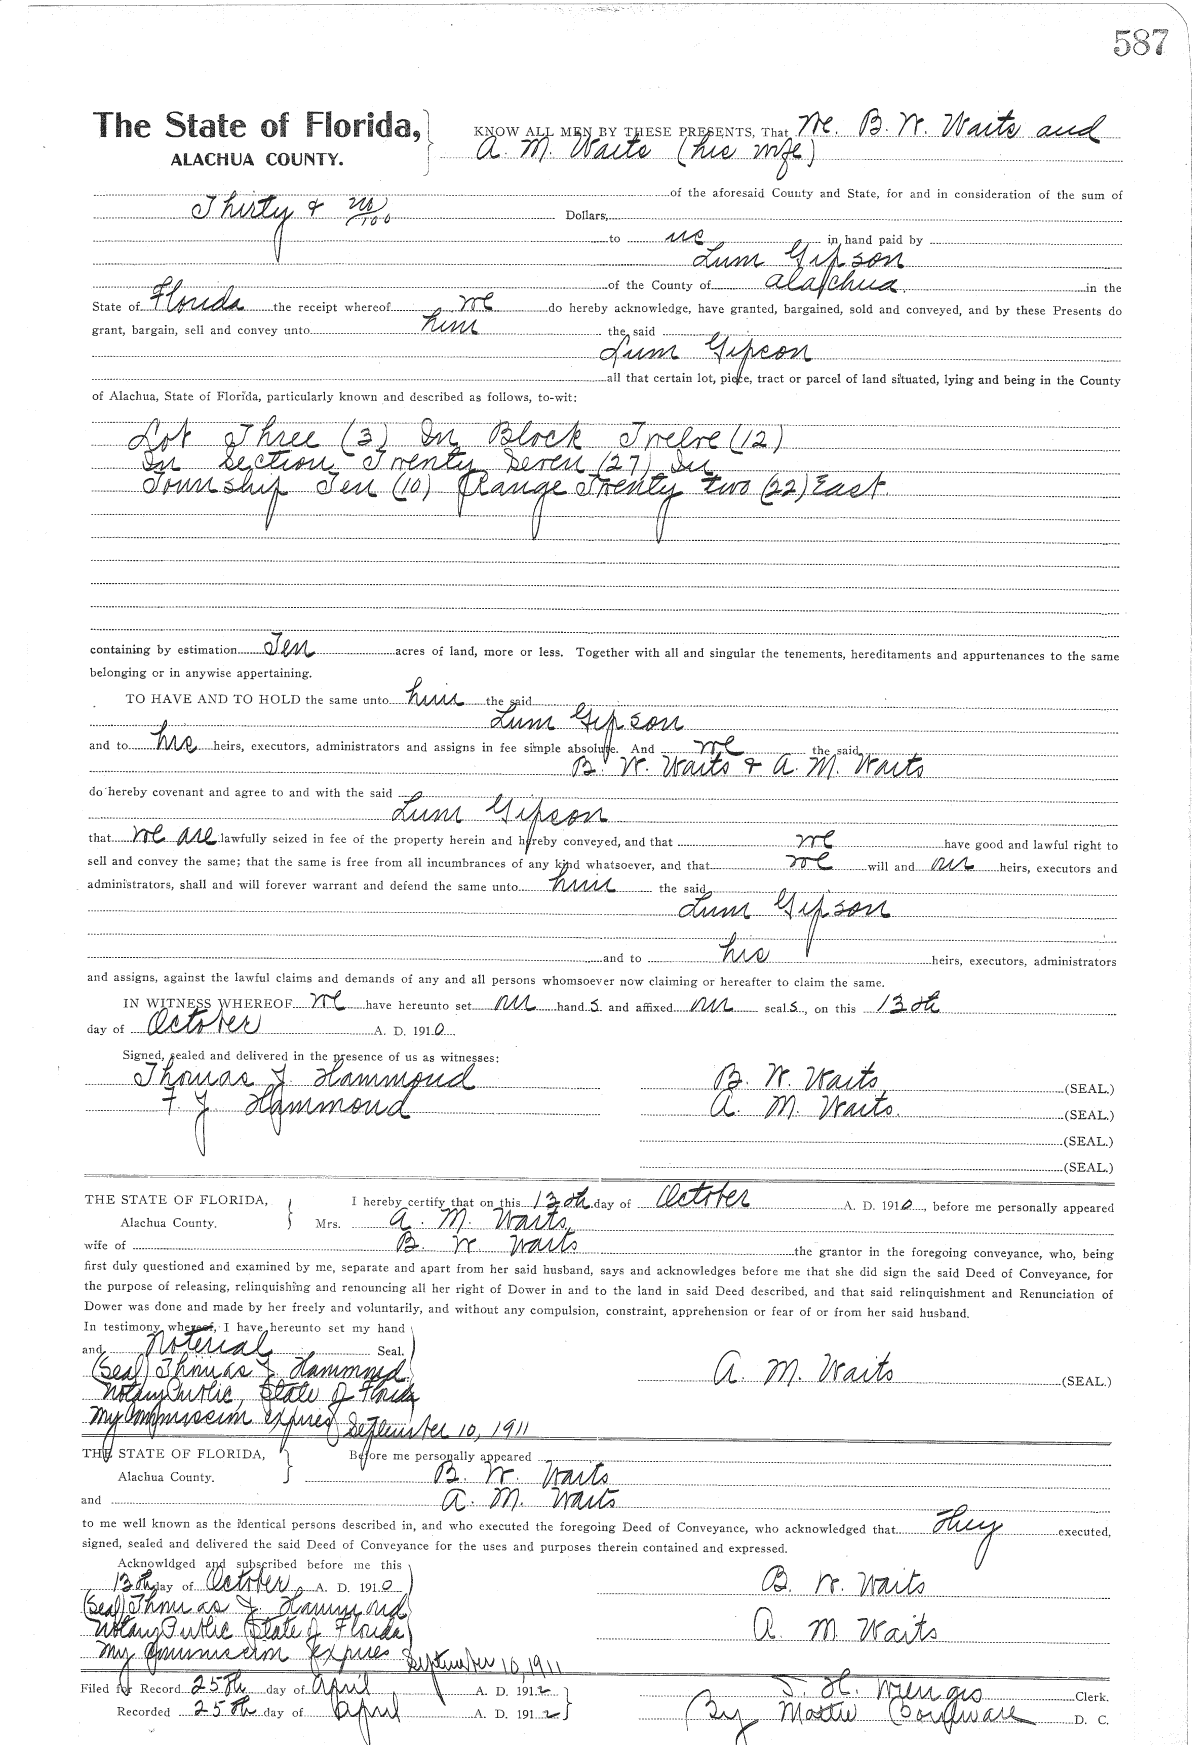 587
The State of Florida,
ALACHUA COUNTY.
KNOW ALL MEN BY THESE PRESENTS, That We. B. W. Waits and
A. M. Waits (his wife)
of the aforesaid County and State, for and in consideration of the sum of
Thirty & no/100 Dollars,
to us in hand paid by
Lum Gipson
of the County of Alachua in the
State of Florida the receipt whereof we do hereby acknowledge, have granted, bargained, sold and conveyed, and by these Presents do
grant, bargain, sell and convey unto him the said
Lum Gipson
all that certain lot, piece, tract or parcel of land situated, lying and being in the County
of Alachua, State of Florida, particularly known and described as follows, to-wit:
Lot Three (3) In Block Twelve (12)
In Section Twenty Seven (27) In
Township Ten (10) Range Twenty two (22) East.
containing by estimation Ten acres of land, more or less. Together with all and singular the tenements, hereditaments and appurtenances to the same
belonging or in anywise appertaining.
TO HAVE AND TO HOLD the same unto him the said
Lum Gipson
and to his heirs, executors, administrators and assigns in fee simple absolute. And we the said
B. W. Waits & A. M. Waits
do hereby covenant and agree to and with the said
Lum Gipson
that we are lawfully seized in fee of the property herein and hereby conveyed, and that we have good and lawful right to
sell and convey the same; that the same is free from all incumbrances of any kind whatsoever, and that we will and our heirs, executors and
administrators, shall and will forever warrant and defend the same unto him the said
Lum Gipson
and to his heirs, executors, administrators
and assigns, against the lawful claims and demands of any and all persons whomsoever now claiming or hereafter to claim the same.
IN WITNESS WHEREOF we have hereunto set our hands and affixed our seals, on this 13th
day of October A. D. 1910
Signed, sealed and delivered in the presence of us as witnesses:
Thomas J Hammond
F. J. Hammond
B. W. Waits (SEAL.)
A. M. Waits. (SEAL.)
(SEAL.)
(SEAL.)
THE STATE OF FLORIDA,
Alachua County.
I hereby certify that on this 13th day of October A. D. 1910, before me personally appeared
Mrs. A. M. Waits
wife of B. W. Waits the grantor in the foregoing conveyance, who, being
first duly questioned and examined by me, separate and apart from her said husband, says and acknowledges before me that she did sign the said Deed of Conveyance, for
the purpose of releasing, relinquishing and renouncing all her right of Dower in and to the land in said Deed described, and that said relinquishment and Renunciation of
Dower was done and made by her freely and voluntarily, and without any compulsion, constraint, apprehension or fear of or from her said husband.
In testimony whereof, I have hereunto set my hand
and Noterial Seal.
(Seal) Thomas J. Hammond
Notary Public, State of Florida
My Commission expires September 10, 1911
A. M. Waits (SEAL.)
THE STATE OF FLORIDA,
Alachua County.
Before me personally appeared
B. W. Waits
and A. M. Waits
to me well known as the identical persons described in, and who executed the foregoing Deed of Conveyance, who acknowledged that they executed,
signed, sealed and delivered the said Deed of Conveyance for the uses and purposes therein contained and expressed.
Acknowldged and subscribed before me this
13th day of October, A. D. 1910
(Seal) Thomas J. Hammond
Notary Public State of Florida
My Commission expires September 10, 1911
B. W. Waits
A. M. Waits
Filed for Record 25th day of April A. D. 1912
Recorded 25th day of April A. D. 1912
S. H. Wienges Clerk.
By Mattie D. C.